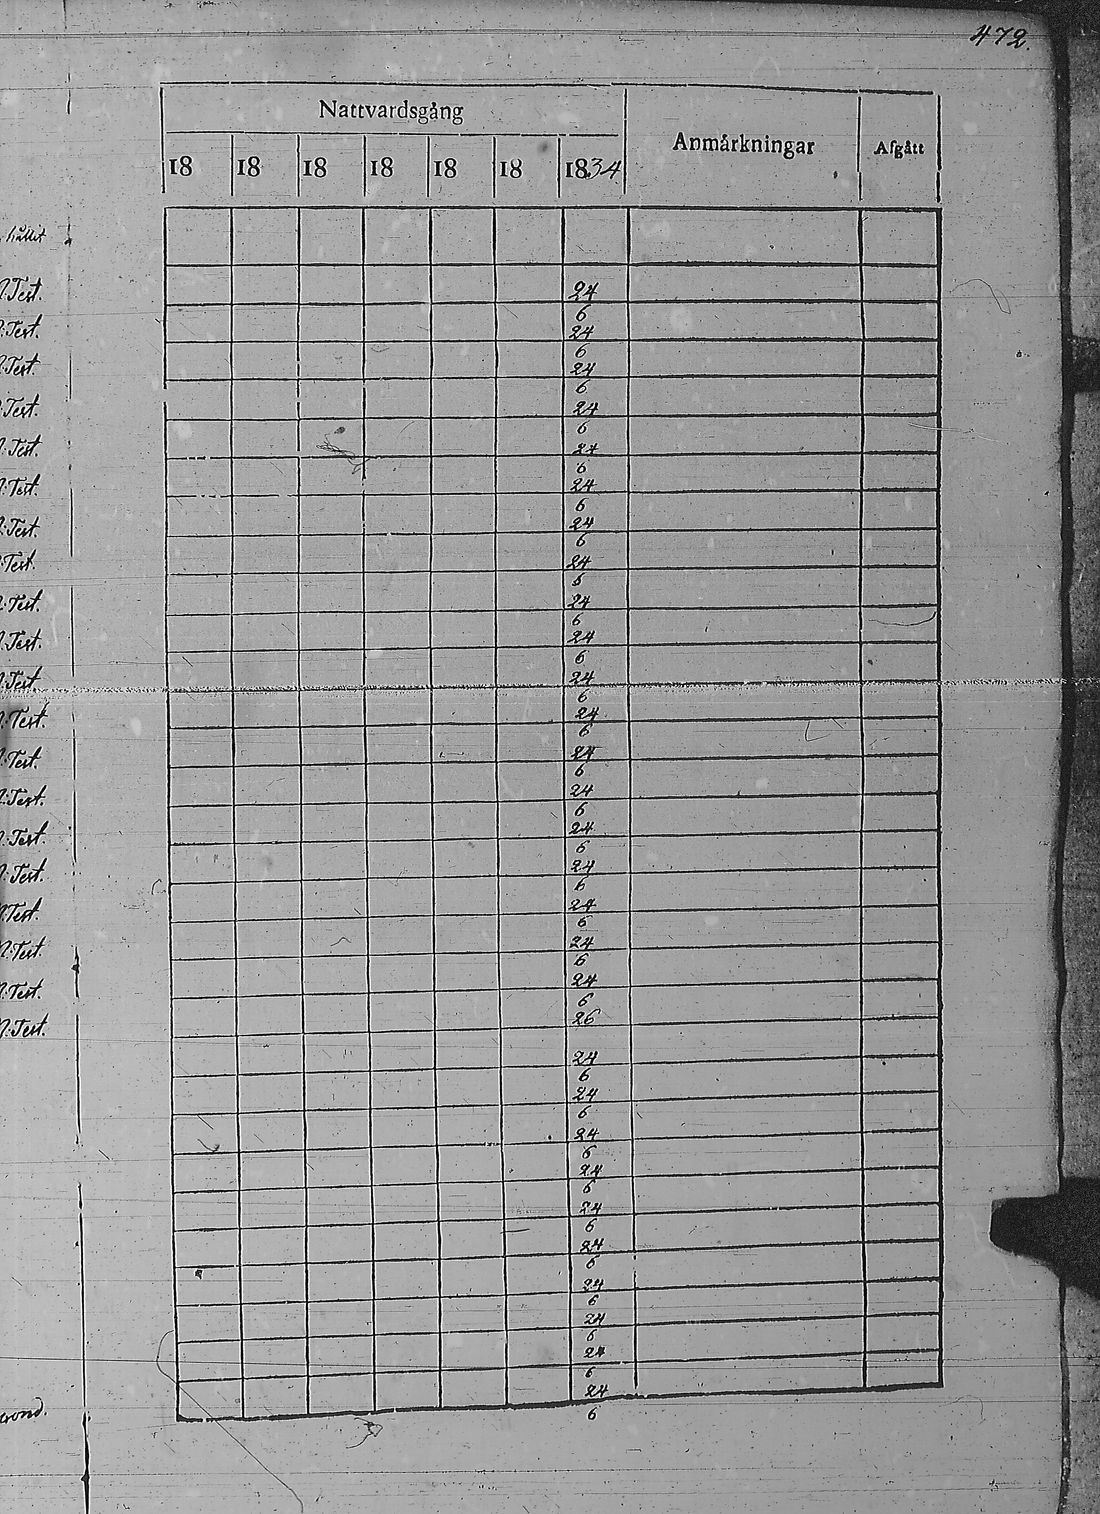 472.
Nattvardsgång Anmärkningar Afgått
18 18 18 18 18 18 1834
hållit
N:Test. 24
6
N:Test. 24
6
N:Test. 24
6
N:Test. 24
6
N:Test. 24
6
N:Test. 24
6
N:Test. 24
6
N:Test. 24
6
N:Test. 24
6
N:Test. 24
6
N:Test. 24
6
N:Test. 24
6
N:Test. 24
6
N:Test. 24
6
N:Test. 24
6
N:Test. 24
6
N:Test. 24
6
N:Test. 24
6
N:Test. 24
6
N:Test. 26
24
6
24
6
24
6
24
6
24
6
24
6
24
6
24
6
24
6
24
6